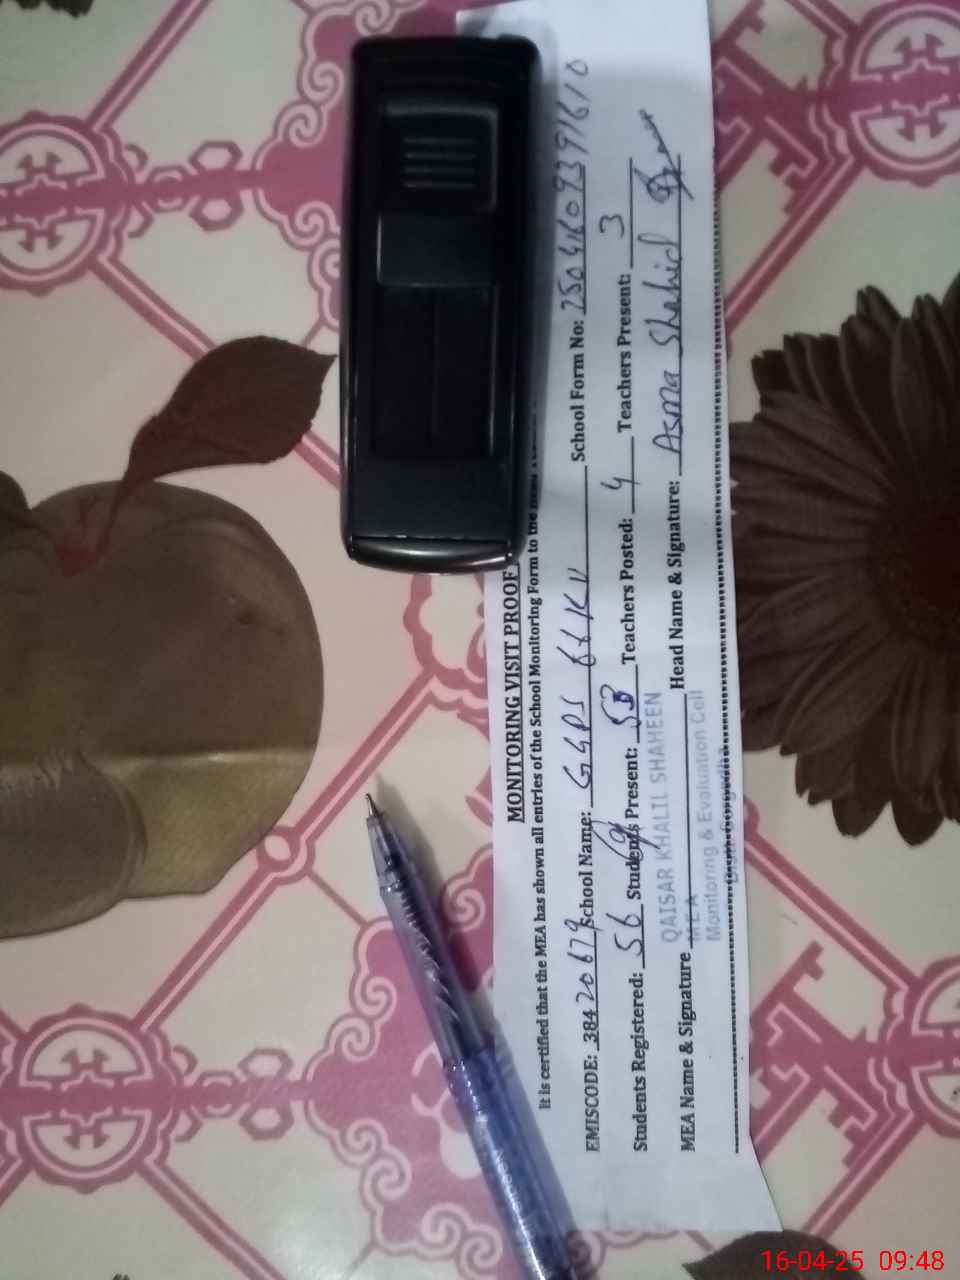 MONITORING VISIT PROOF
It is certified that the MEA has shown all entries of the School Monitoring Form to the
EMISCODE: 38420679 School Name: GGPS 66 School Form No:
Students Registered: 56 Students Present: 53 Teachers Posted: 4 Teachers Present: 3
MEA Name & Signature Head Name & Signature: Asma Shahid
QAISAR KHALIL SHAHEEN
MEA
Monitoring & Evaluation Cell
16-04-25 09:48